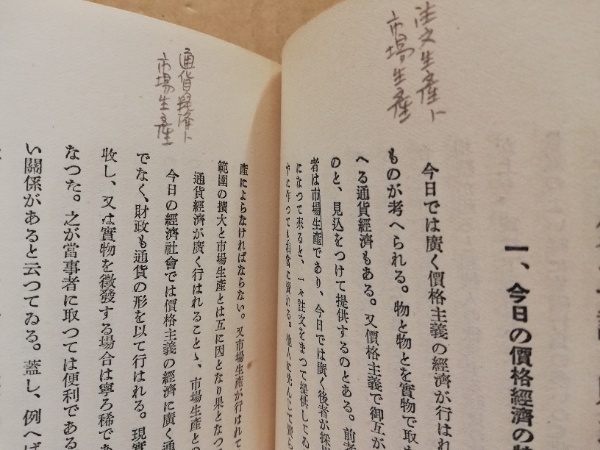 注文生產ト
市場生產
一、今日の價格經濟の特
今日では廣く價格主義の經濟が行はれ
ものが考へられる。物と物とを實物で取
へる通貨經濟もある。又價格主義で御互が
のと、見込をつけて提供するのとある。前
者は市場生產であり、今日では廣く後者が採
になつて來ると、一々註文をまつて提供してゐ
通貨經濟ト
市場生產
產によらなければならない。又市場生產が行はれて
範圍の擴大と市場生產とは互に因となり果となつ
通貨經濟が廣く行はれることゝ、市場生產との
今日の經濟社會では價格主義の經濟に廣く通
でなく、財政も通貨の形を以て行はれる。現實
收し、又は實物を徵發する場合は寧ろ稀であ
なつた。之が當事者に取つては便利である
い關係があると云つてゐる。蓋し、例へば